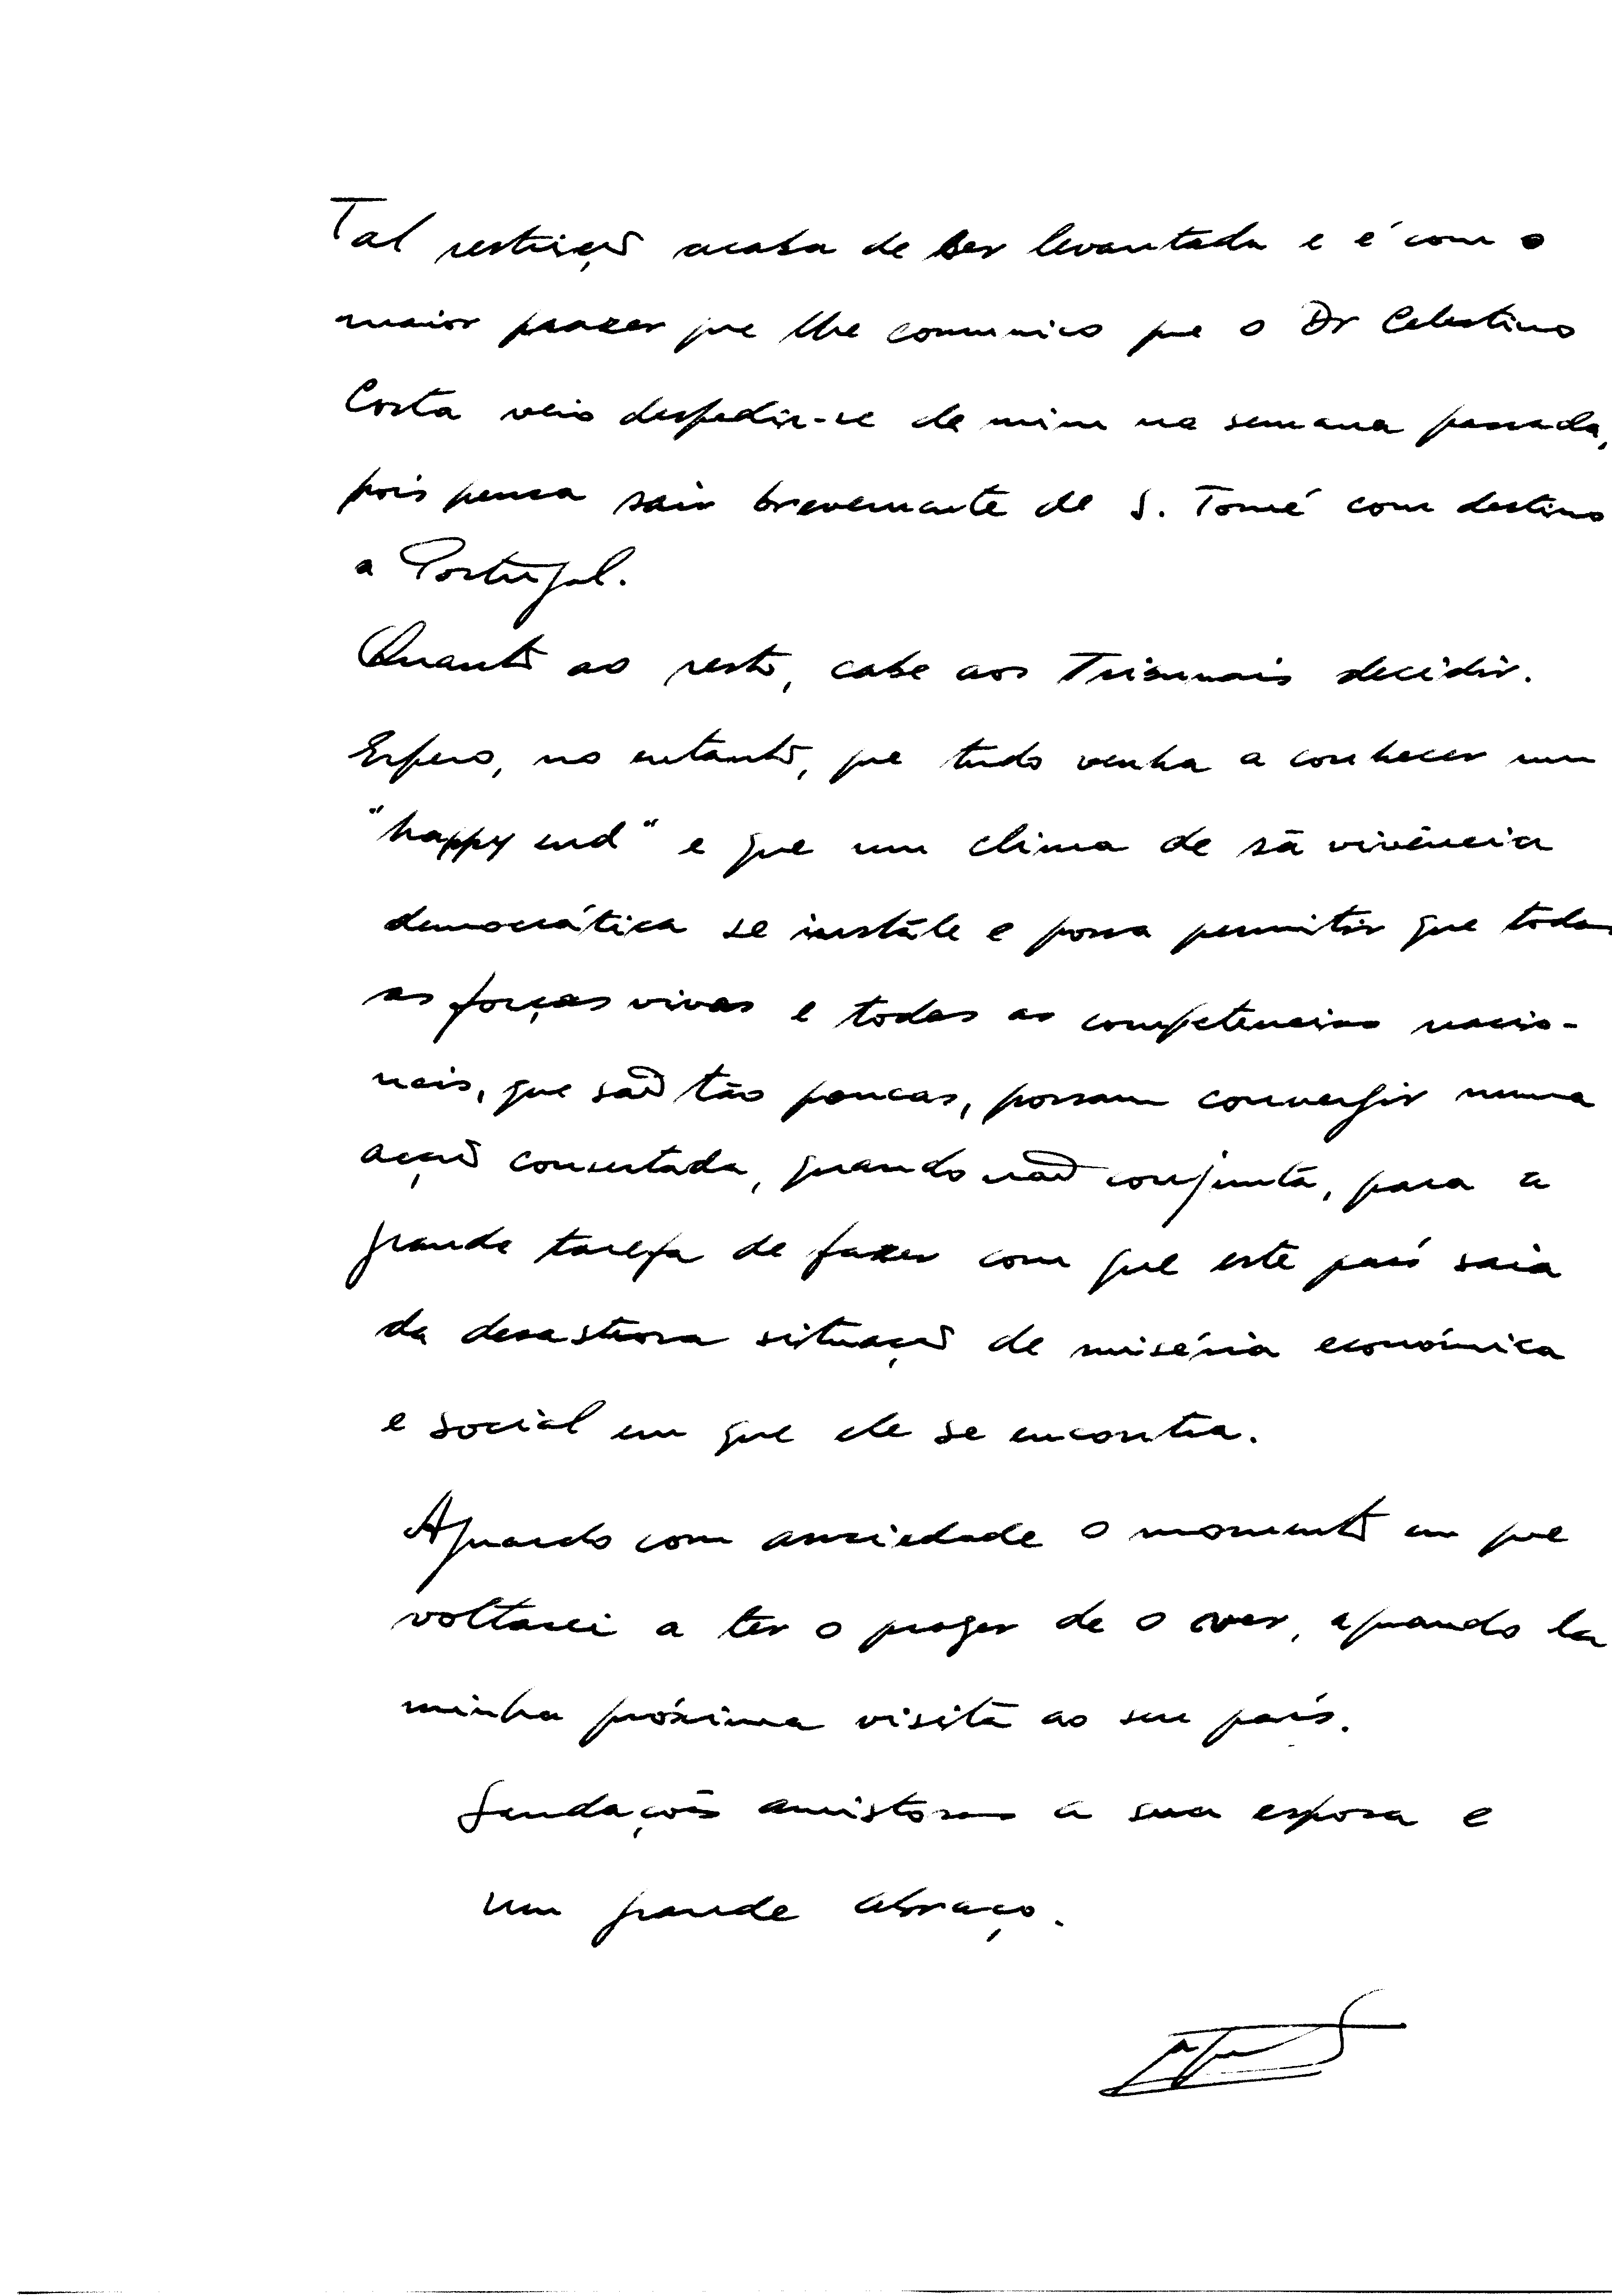 Tal restrição acaba de ser levantada e é com o
maior prazer que lhe comunico que o Dr Celestino
Costa veio despedir-se de mim na semana passada,
pois pensa sair brevemente de S. Tomé com destino
a Portugal.
Quanto ao resto, cabe aos Tribunais decidir.
Espero, no entanto, que tudo venha a conhecer um
"happy end" e que um clima de sã vivência
democrática se instale e possa permitir que todas
as forças vivas e todas as competências nacio-
nais, que são tão poucas, possam convergir numa
acção consertada, quando não conjunta, para a
grande tarefa de fazer com que este país saia
da desastrosa situação de miséria económica
e social em que ele se encontra.
Aguardo com ansiedade o momento em que
voltarei a ter o prazer de o ver, aquando da
minha próxima visita ao seu país.
Saudações amistosas a sua esposa e
um grande abraço.